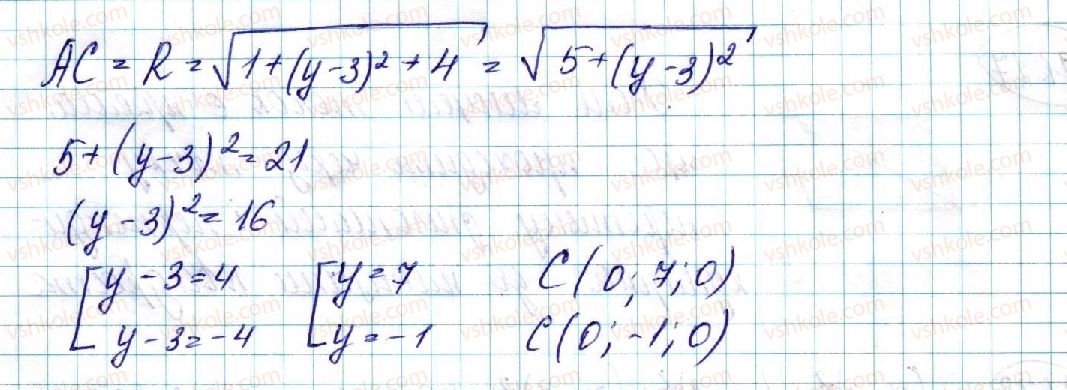 AC = R = √(1+(y-3)²+4) = √(5+(y-3)²)
5+(y-3)²=21
(y-3)²=16
[y-3=4 [y=7 C(0;7;0)
[y-3=-4 [y=-1 C(0;-1;0)
vshkole.com